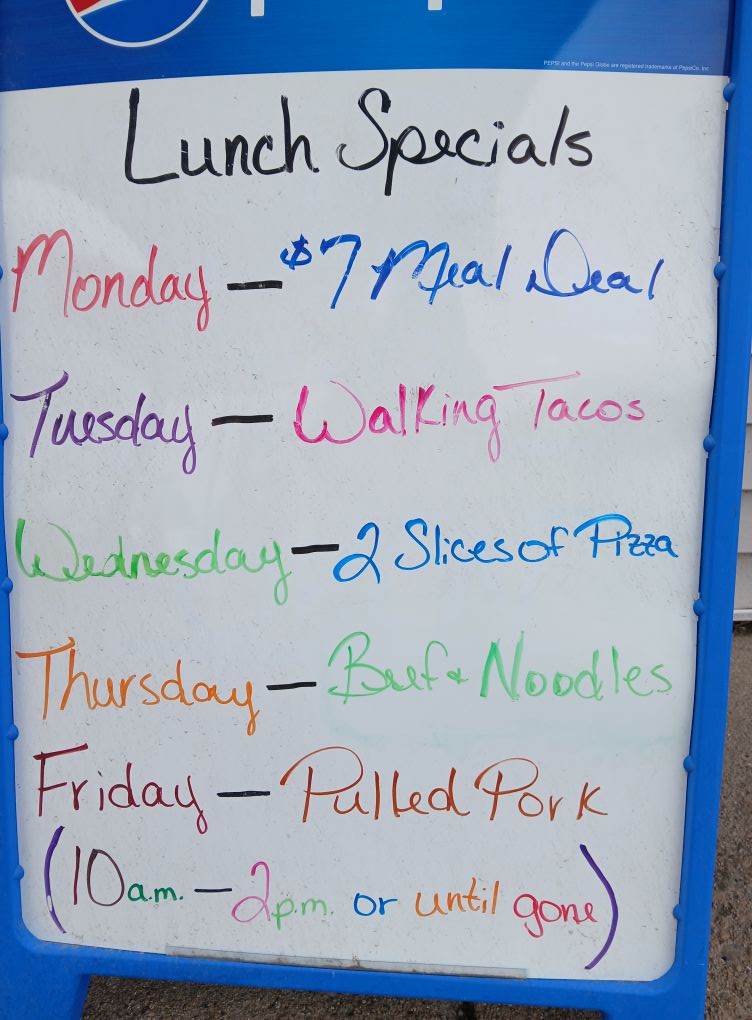 PEPSI and the Pepsi Globe are registered trademarks of PepsiCo, Inc.
Lunch Specials
Monday — $7 Meal Deal
Tuesday — Walking Tacos
Wednesday — 2 Slices of Pizza
Thursday — Beef & Noodles
Friday — Pulled Pork
(10a.m. — 2p.m. or until gone)